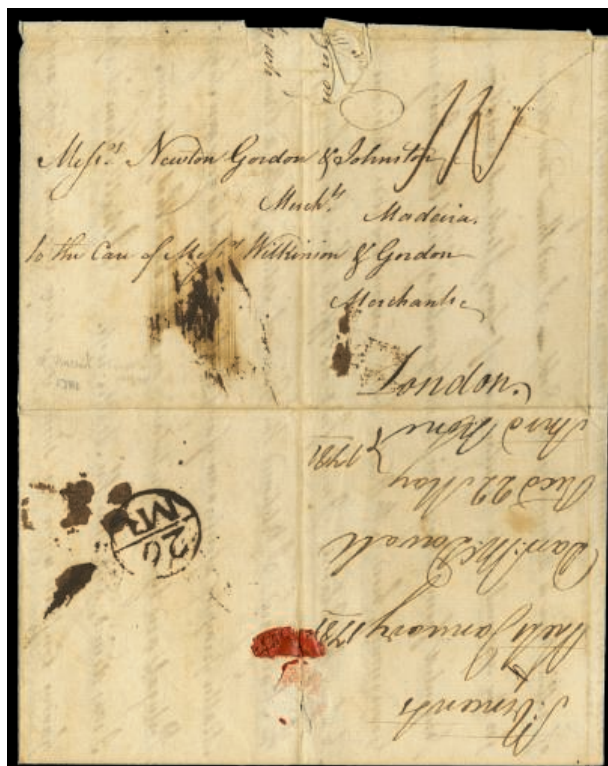 Mess.rs Newton Gordon & Johnston
Merch.ts Madeira.
to the Care of Mess.rs Wilkinson & Gordon
Merchants
London.
S.t Vincents
the January 1781
Dan.l McDowall
Rec'd 22 May
1781
26
MR